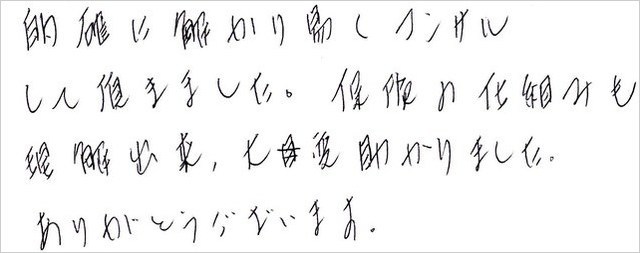 的確に解かり易くコンサル
して頂きました。保険の仕組みも
理解出来、大変助かりました。
ありがとうございます。